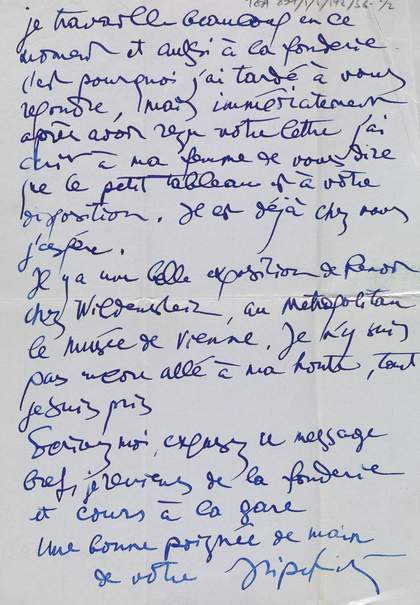 je travaille beaucoup en ce
moment et aussi à la fonderie
c'est pourquoi j'ai tardé à vous
repondre, mais immédiatement
après avoir reçu votre lettre j'ai
écrit à ma femme de vous dire
que le petit tableau est à votre
disposition. Il est déjà chez vous
j'espère.
Il y a une belle exposition de Renoir
chez Wildenstein, au Metropolitan
le musée de Vienne. Je n'y suis
pas encore allé à ma honte, tant
je suis pris
Ecrivez moi, excusez ce message
bref, je reviens de la fonderie
et cours à la gare
Une bonne poignée de main
de votre Lipchitz